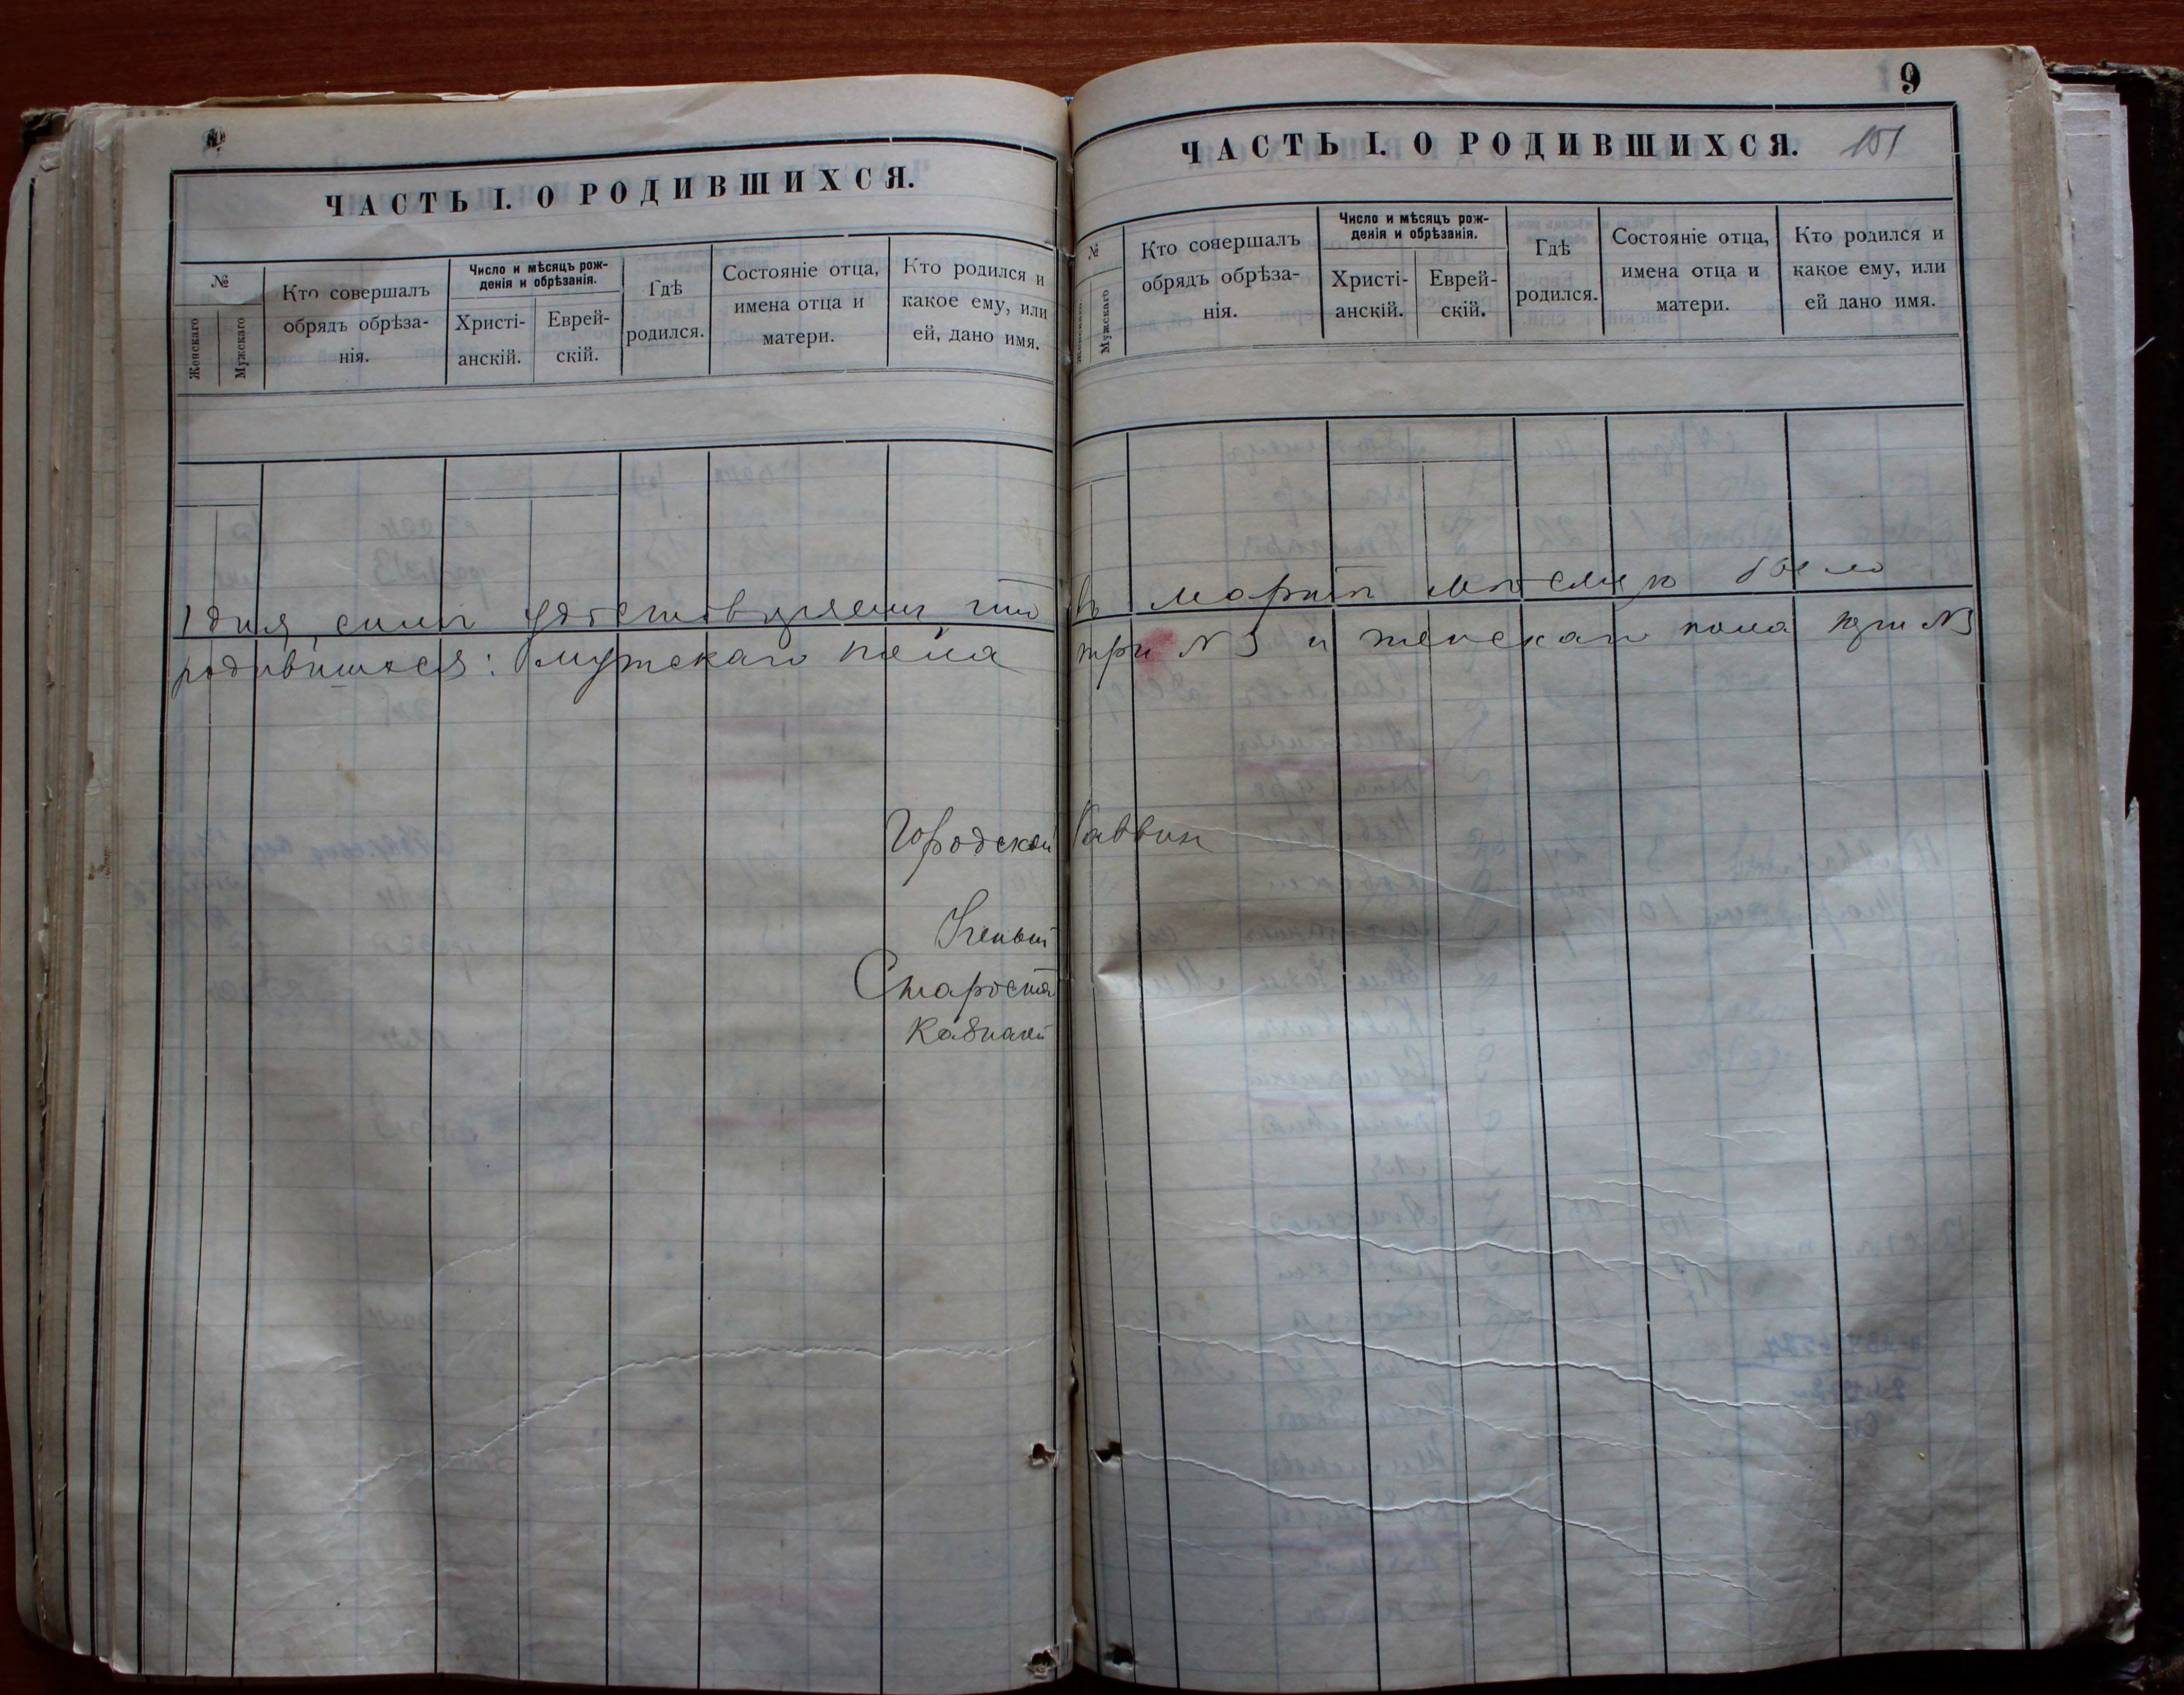 ЧАСТЬ I. О РОДИВШИХСЯ.
№
Женскаго
Мужскаго
Кто совершалъ
обрядъ обрѣза-
нія.
Число и мѣсяцъ рож-
денія и обрѣзанія.
Христі-
анскій.
Еврей-
скій.
Гдѣ
родился.
Состояніе отца,
имена отца и
матери.
Кто родился и
какое ему, или
ей, дано имя.
9
ЧАСТЬ I. О РОДИВШИХСЯ.
151
№
Женскаго
Мужскаго
Кто совершалъ
обрядъ обрѣза-
нія.
Число и мѣсяцъ рож-
денія и обрѣзанія.
Христі-
анскій.
Еврей-
скій.
Гдѣ
родился.
Состояніе отца,
имена отца и
матери.
Кто родился и
какое ему, или
ей дано имя.
симъ что въ мартѣ мѣсяцѣ было
родившихся: мужскаго пола три № 3 и женскаго пола три № 3
Городской Раввин
Ученый
Староста
Казначей